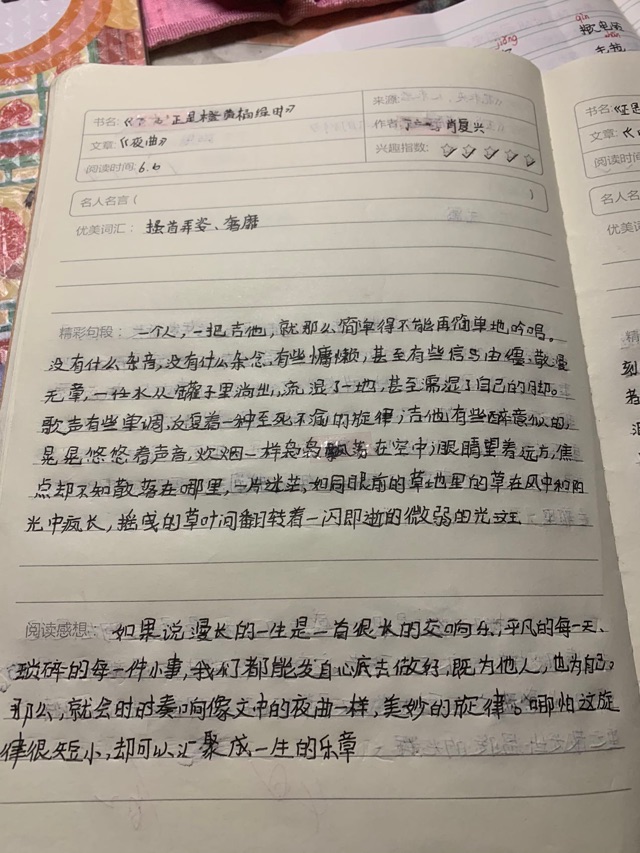 书名:《正是橙黄橘绿时》
来源:
文章:《夜曲》
作者 肖复兴
阅读时间: 6.6
兴趣指数:
名人名言( )
优美词汇: 搔首弄姿、奢靡
精彩句段: 一个人,一把吉他,就那么简单得不能再简单地吟唱。
没有什么杂音,没有什么杂念,有些慵懒,甚至有些信马由缰、散漫
无章,一任水从罐子里淌出,流湿了一地,甚至濡湿了自己的脚。
歌声有些单调,反复着一种至死不渝的旋律;吉他有些醉意似的,
晃晃悠悠着声音,炊烟一样袅袅飘荡在空中;眼睛望着远方,焦
点却不知散落在哪里,一片迷茫,如同眼前的草地里的草在风中和阳
光中疯长,摇曳的草叶间翻转着一闪即逝的微弱的光斑
阅读感想: 如果说漫长的一生是一首很长的交响乐,平凡的每一天、
琐碎的每一件小事,我们都能发自心底去做好,既为他人,也为自己。
那么,就会时时奏响像文中的夜曲一样,美妙的旋律。哪怕这旋
律很短小,却可以汇聚成一生的乐章
书名:《正是
文章:《
阅读时间:
名人名
优美词
精